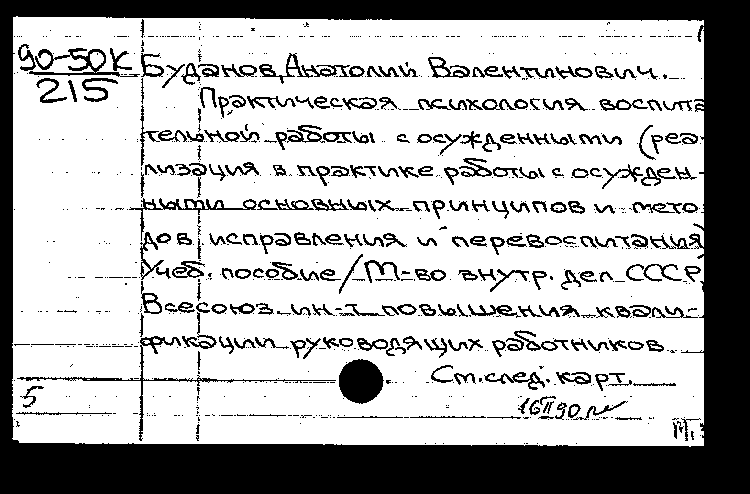 90-50К Буданов, Анатолий Валентинович.
215
Практическая психология воспита
тельной работы с осужденными (реа-
лизация в практике работы с осужден-
ными основных принципов и мето
дов исправления и перевоспитания)
Учеб. пособие / М-во внутр. дел СССР,
Всесоюз. ин-т повышения квали-
фикации руководящих работников
См. след. карт.
5
16 II 90